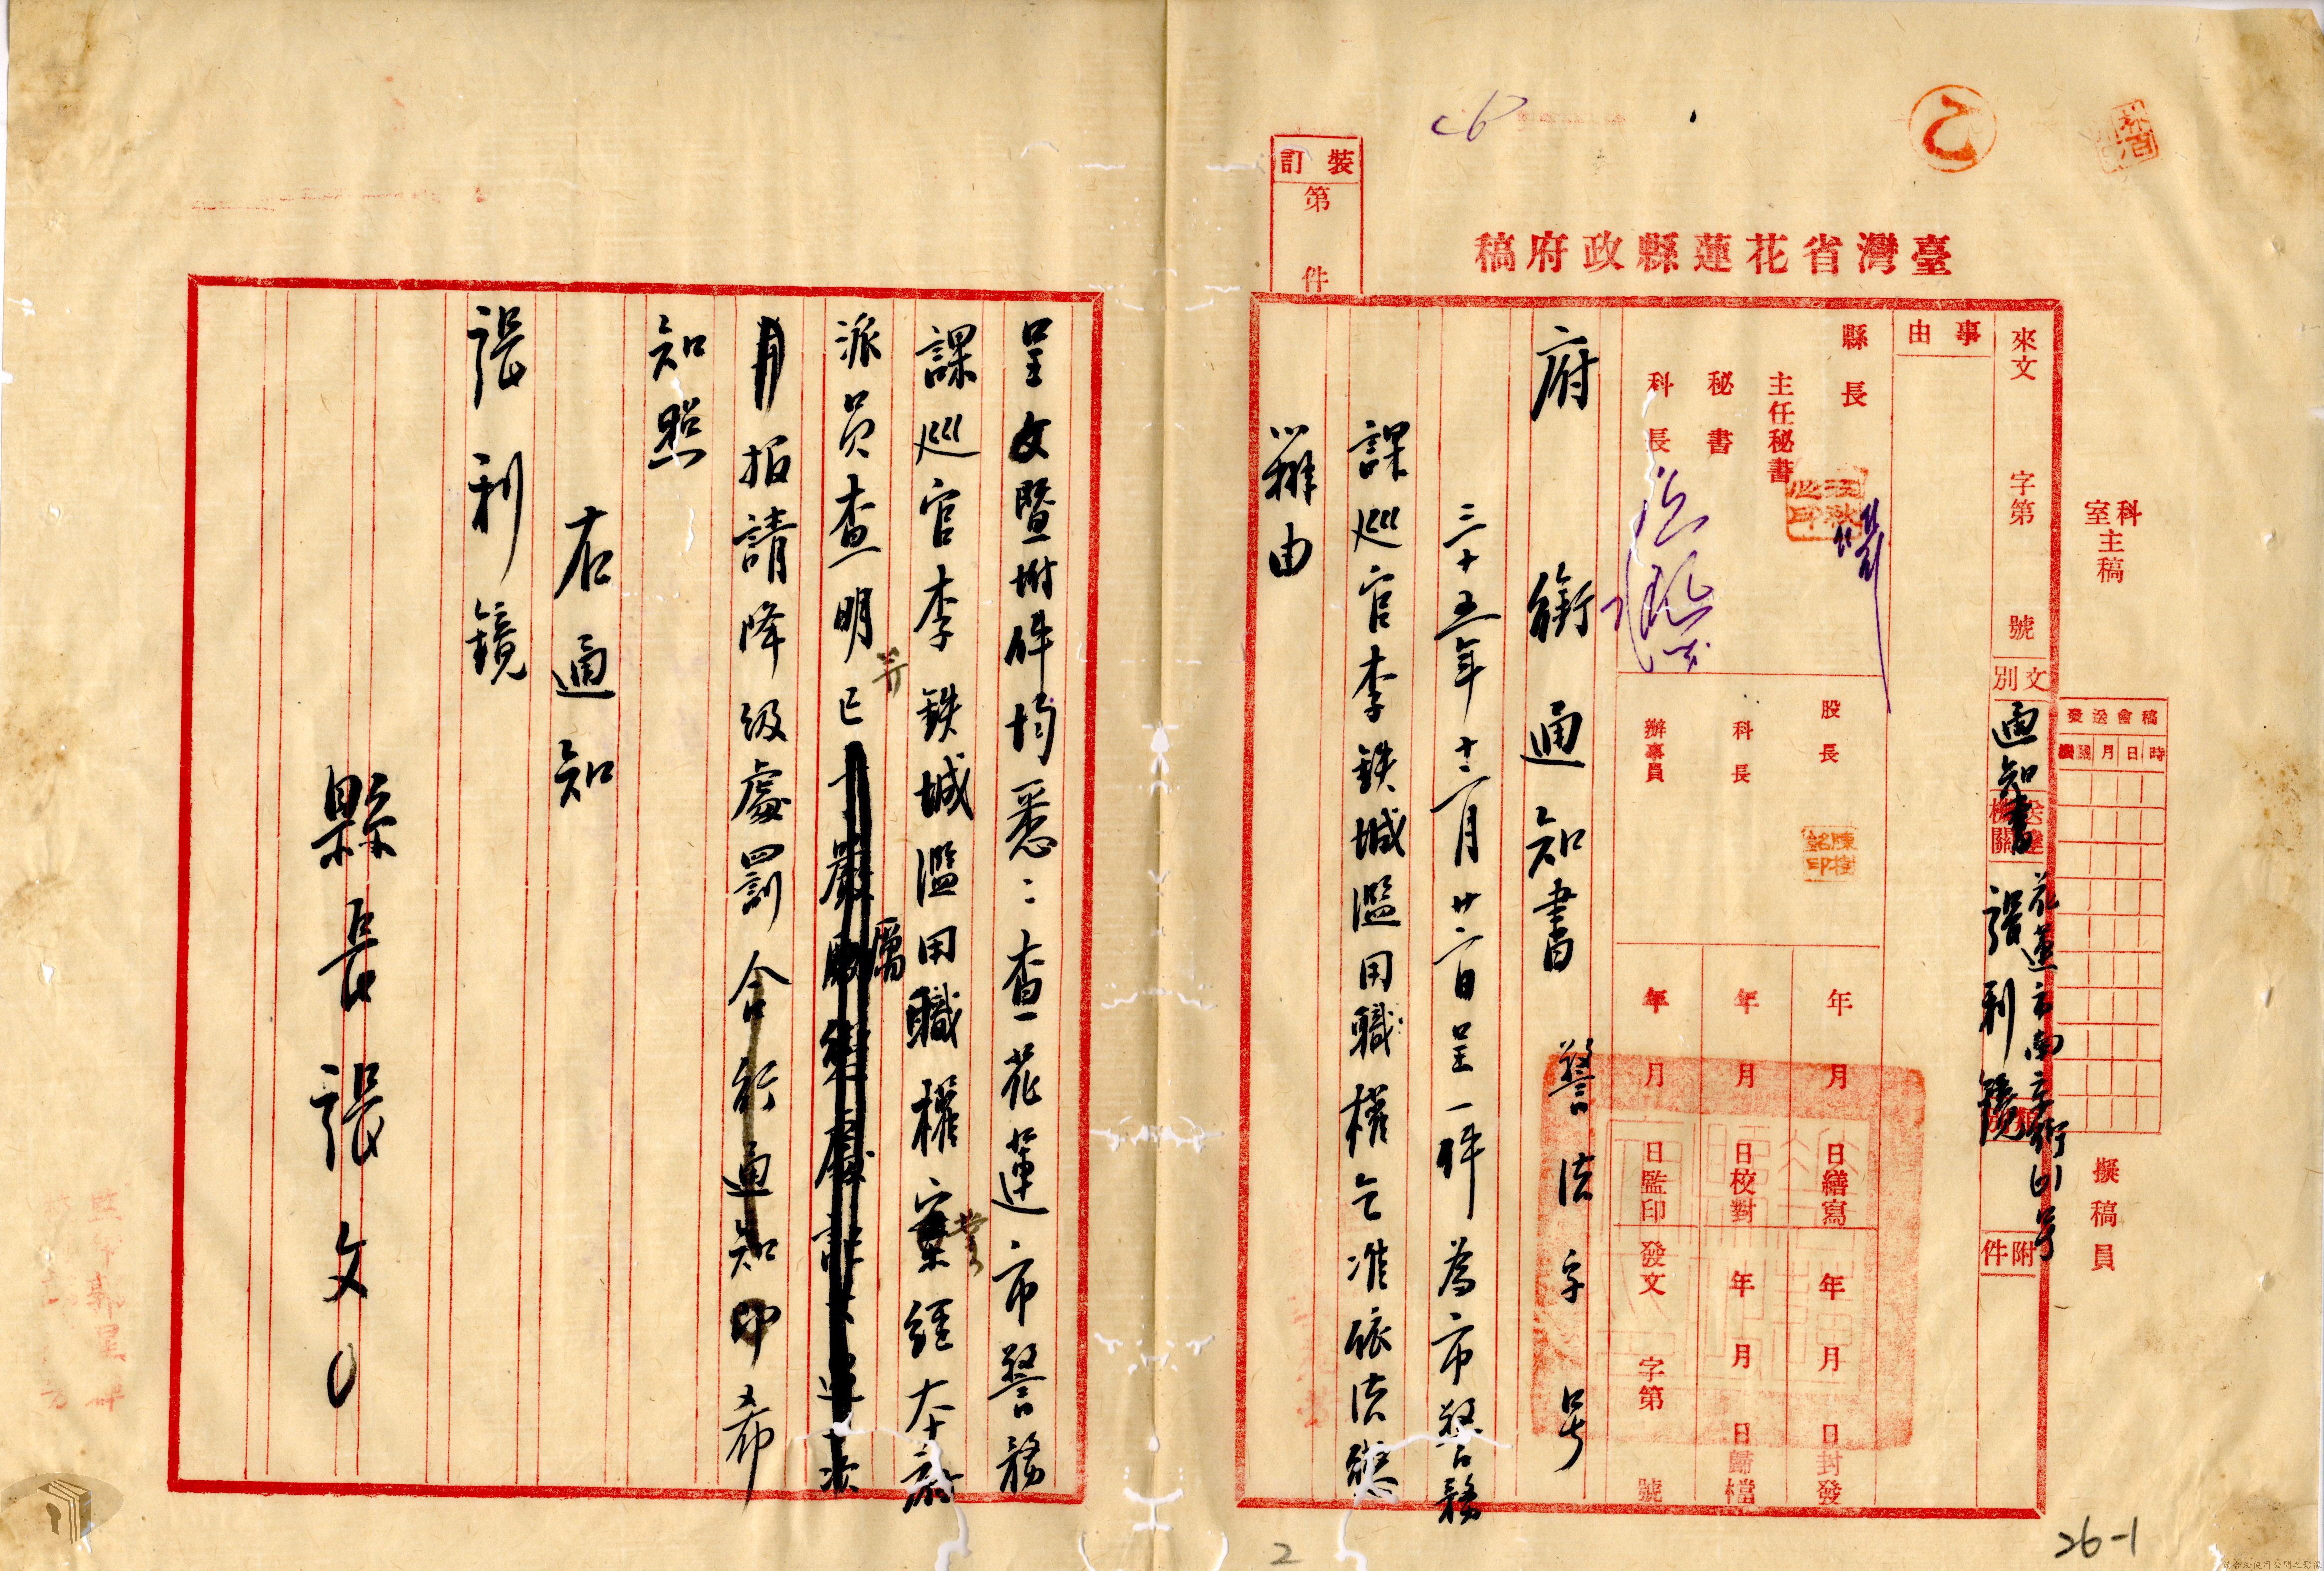 乙
臺灣省花蓮縣政府稿
裝訂
第 件
科室主稿
擬稿員
稿會送發
時日月
來文 字第 號
文別
通知書
送達機關
花蓮市南京街
張利鏡
附件
事由
縣長
主任秘書
秘書
科長
股長
科長
辦事員
陳樹銘印
年月日繕寫
年月日校對
年月日監印
年月日封發
年月日歸檔
發文 字第 號
府銜通知書 警法字 号
三十五年十二月廿二日呈一件為市警務
課巡官李鉄城濫用職權乞准依法懲
辦由
呈文暨附件均悉:查花蓮市警務
課巡官李鉄城濫用職權案經本府
派員查明
報請降級處罰合行通知即希
知照
右通知
張利鏡
縣長張文
2
26-1